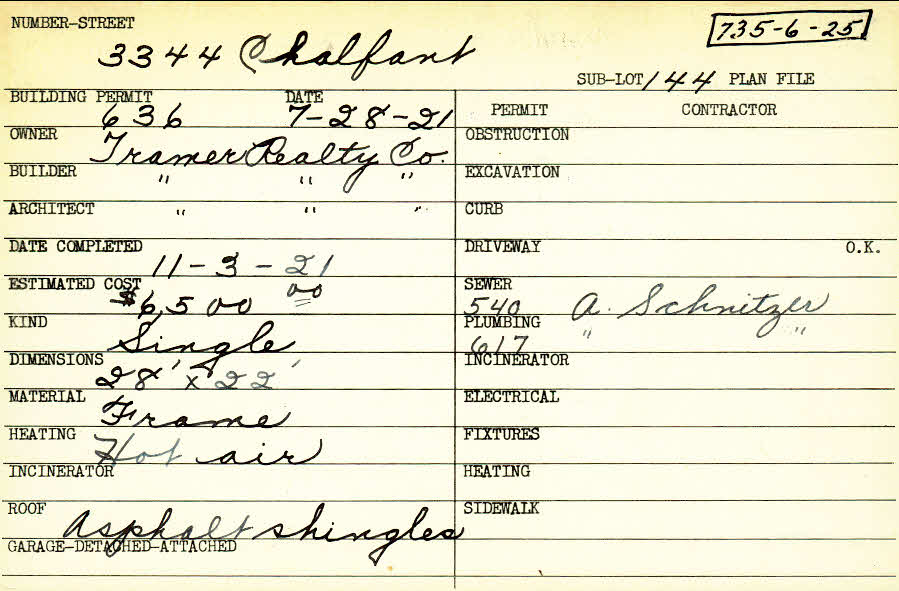 NUMBER-STREET
3344 Chalfant
735-6-25
SUB-LOT 144 PLAN FILE
BUILDING PERMIT DATE
636 7-28-21
PERMIT CONTRACTOR
OWNER
Tramer Realty Co.
OBSTRUCTION
BUILDER
" " "
EXCAVATION
ARCHITECT " " "
CURB
DATE COMPLETED
11-3-21
DRIVEWAY O.K.
ESTIMATED COST
$6500 00
SEWER
540 A. Schnitzer
KIND
Single
PLUMBING " "
617
DIMENSIONS
28' x 22'
INCINERATOR
MATERIAL
Frame
ELECTRICAL
HEATING
Hot air
FIXTURES
INCINERATOR
HEATING
ROOF
Asphalt shingles
SIDEWALK
GARAGE-DETACHED-ATTACHED